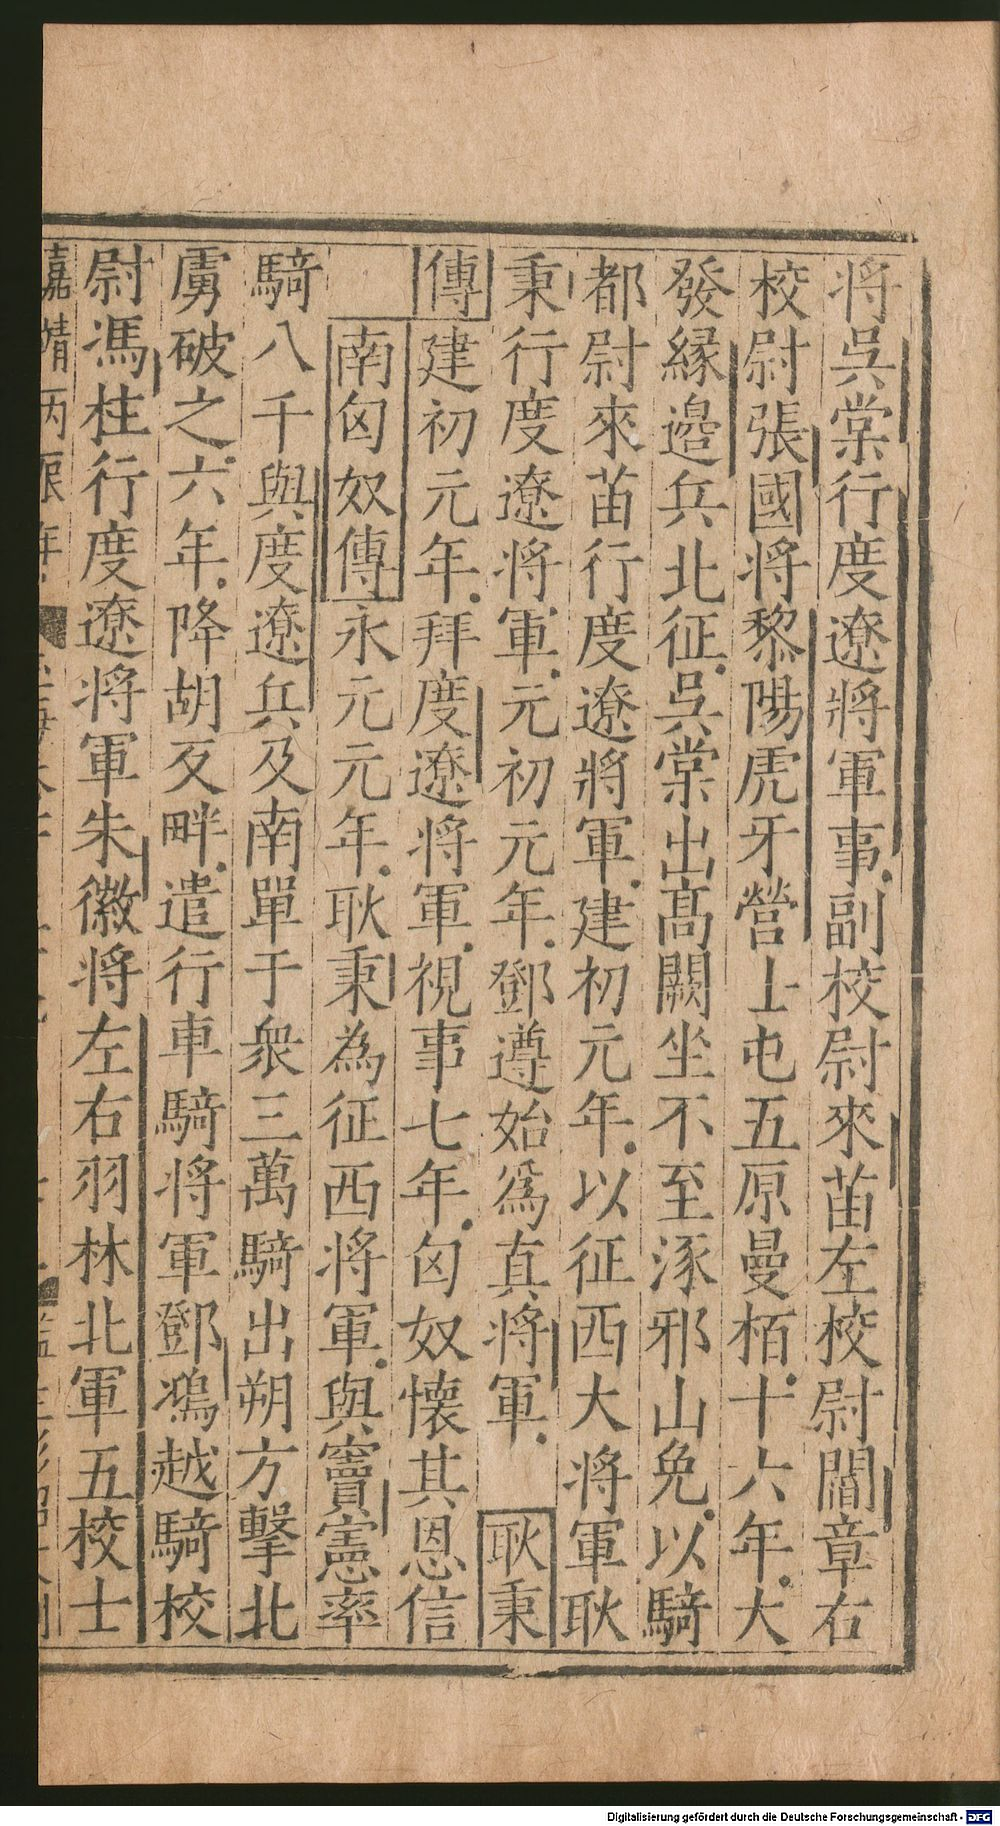 將吳棠行度遼將軍事副校尉來苗左校尉閻章右
校尉張國將黎陽虎牙營士屯五原曼栢十六年大
發縁邉兵北征吳棠出髙闕坐不至涿邪山免以騎
都尉來苗行度遼將軍建初元年以征西大將軍耿
秉行度遼將軍元初元年鄧遵始爲真將軍 耿秉
傳建初元年拜度遼將軍視事七年匈奴懷其恩信
南匈奴傳永元元年耿秉為征西將軍與竇憲率
騎八千與度遼兵及南單于衆三萬騎出朔方擊北
虜破之六年降胡反畔遣行車騎將軍鄧鴻越騎校
尉馮柱行度遼將軍朱徽將左右羽林北軍五校士
嘉靖丙辰年
Digitalisierung gefördert durch die Deutsche Forschungsgemeinschaft - DFG